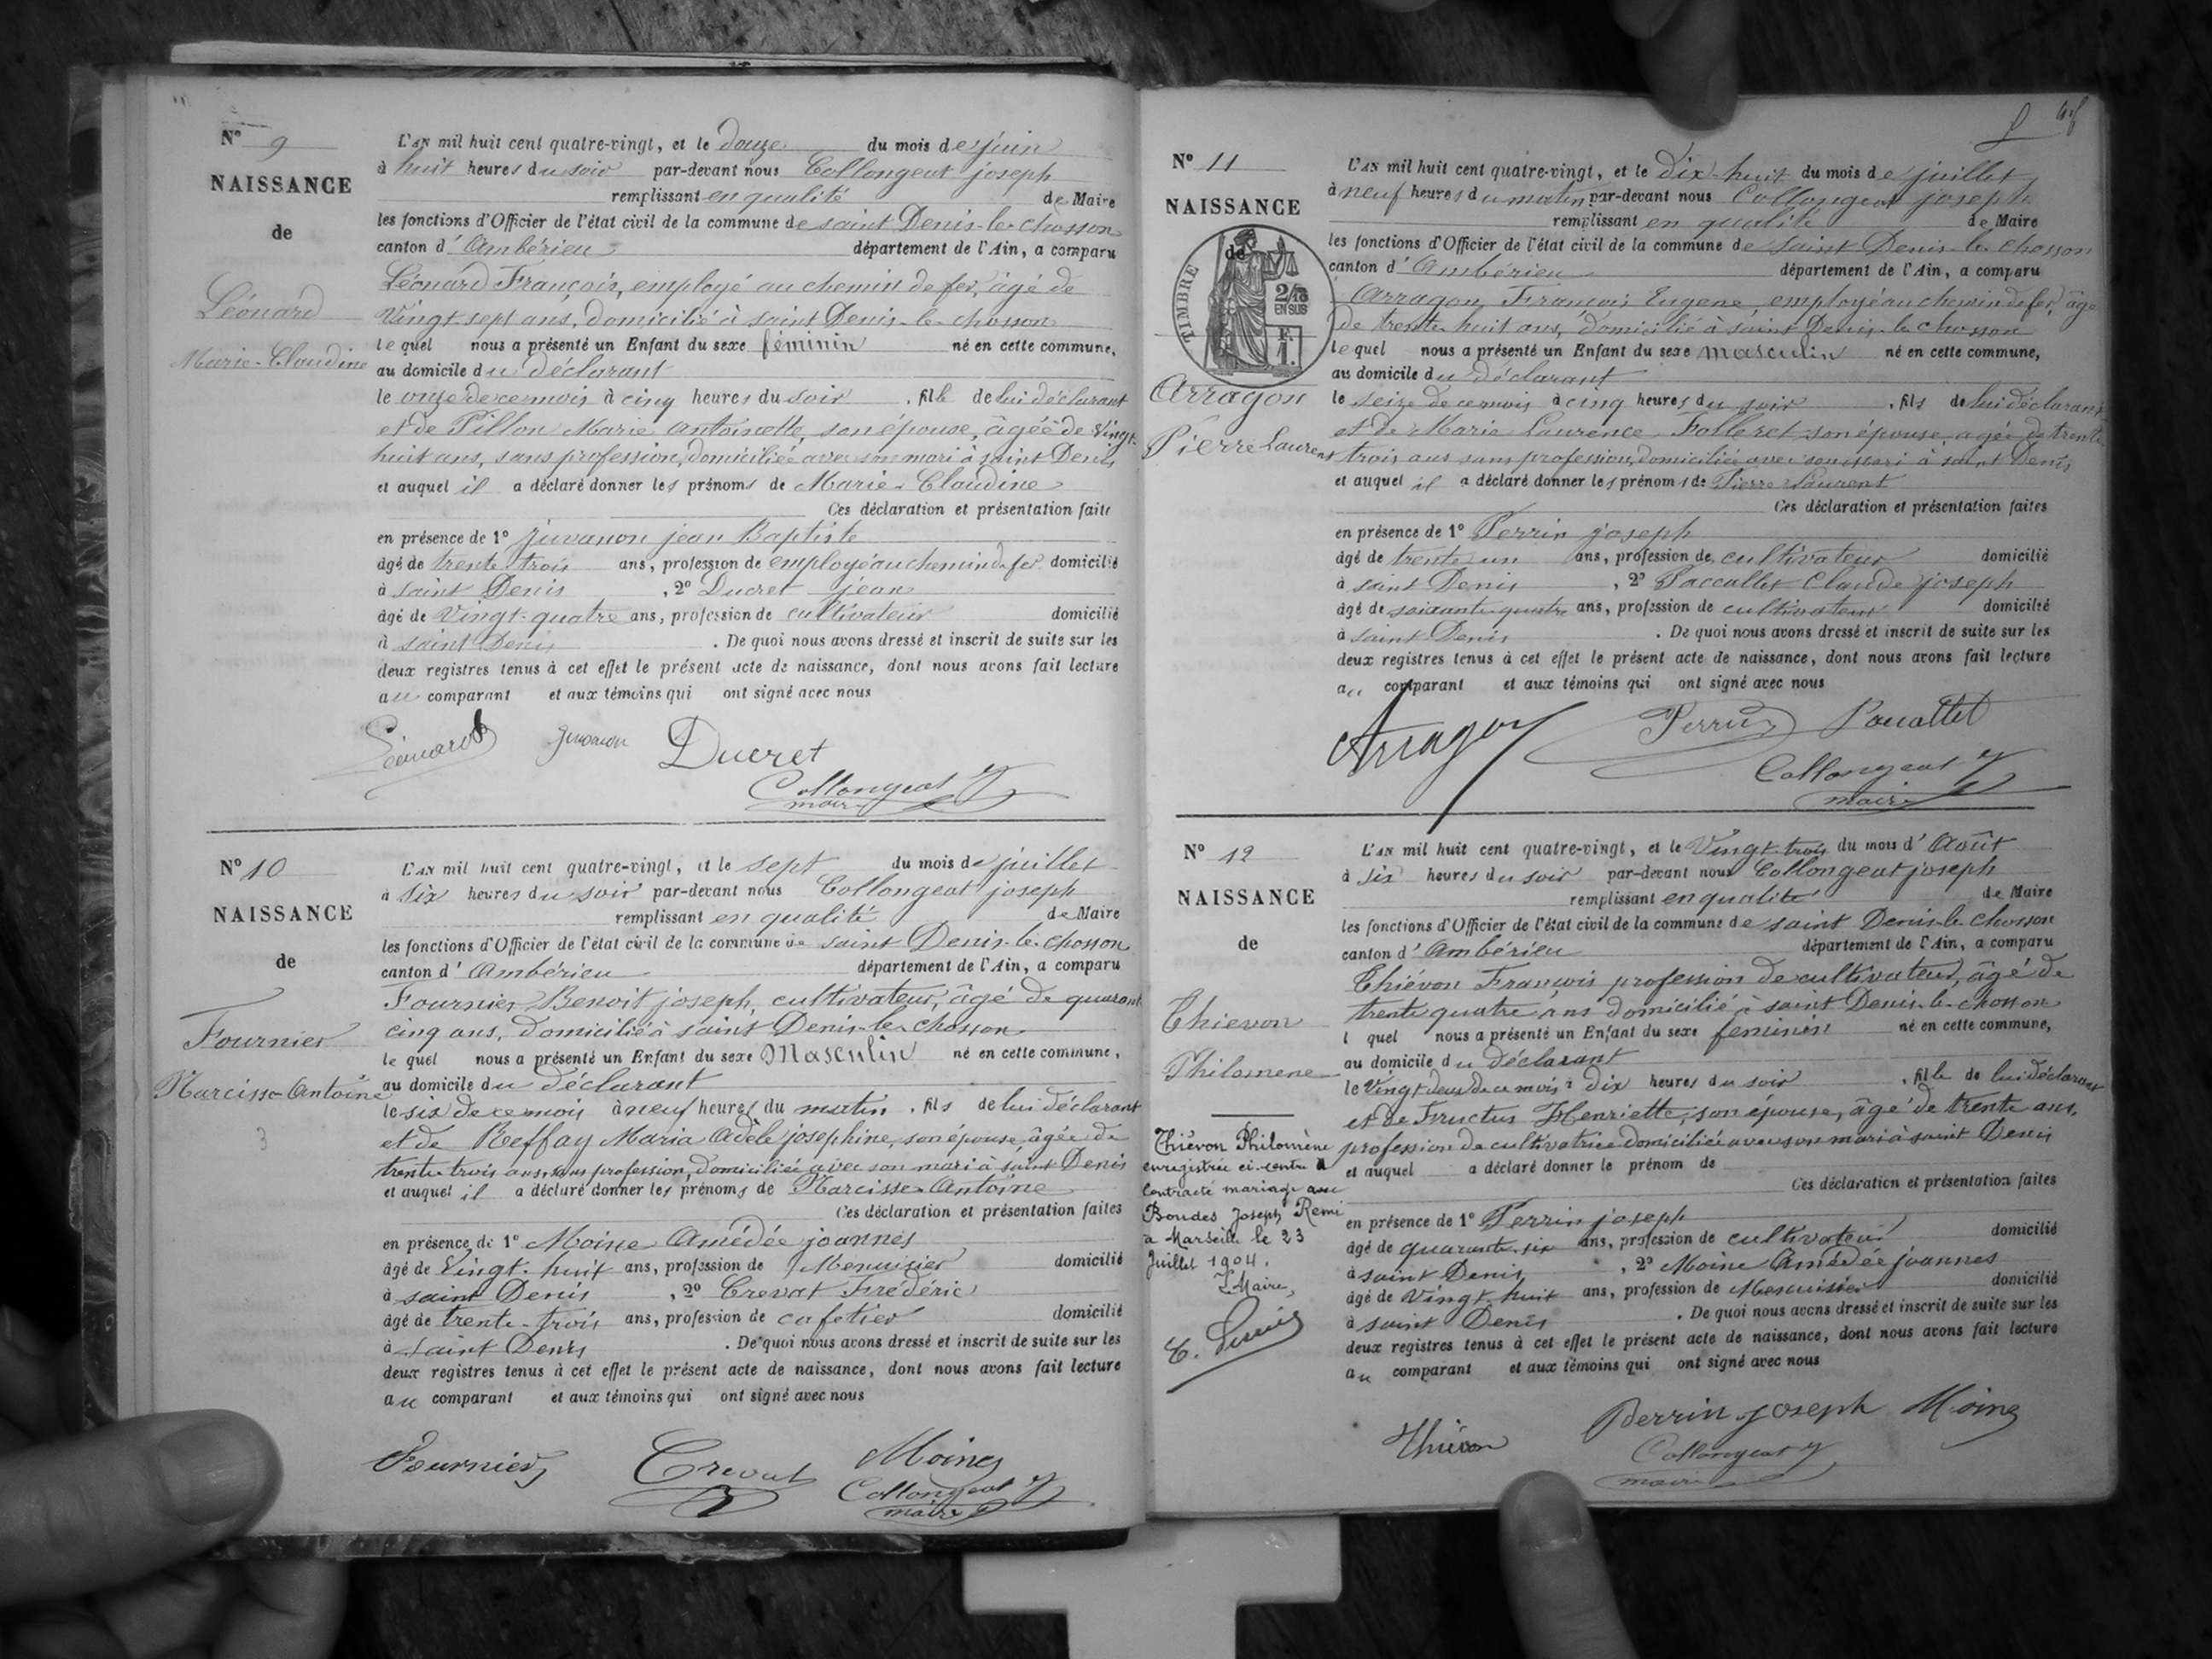 N° 9
NAISSANCE
de
Léonard
Marie-Claudine
L'AN mil huit cent quatre-vingt, et le douze du mois de juin
à huit heures du soir par-devant nous Collongeat joseph
remplissant en qualité de Maire
les fonctions d'Officier de l'état civil de la commune de saint Denis-le-chosson
canton d'Ambérieu département de l'Ain, a comparu
Léonard François, employé au chemin de fer, âgé de
Vingt-sept ans, domicilié à saint Denis-le-chosson
lequel nous a présenté un Enfant du sexe féminin né en cette commune,
au domicile du déclarant
le onze de ce mois à cinq heures du soir, fille de lui déclarant
et de Pillon Marie Antoinette, son épouse, âgée de Vingt-
huit ans, sans profession, domiciliée avec son mari à saint Denis
et auquel il a déclaré donner les prénoms de Marie-Claudine
Ces déclaration et présentation faite
en présence de 1° Juvanon jean Baptiste
âgé de trente-trois ans, profession de employé au chemin de fer domicilié
à saint Denis, 2° Ducret jean
âgé de Vingt-quatre ans, profession de cultivateur domicilié
à saint Denis. De quoi nous avons dressé et inscrit de suite sur les
deux registres tenus à cet effet le présent acte de naissance, dont nous avons fait lecture
au comparant et aux témoins qui ont signé avec nous
Léonard Juvanon Ducret
Collongeat J
maire
N° 10
NAISSANCE
de
Fournier
Narcisse-Antoine
3
L'AN mil huit cent quatre-vingt, et le sept du mois de juillet
à six heures du soir par-devant nous Collongeat joseph
remplissant en qualité de Maire
les fonctions d'Officier de l'état civil de la commune de saint Denis-le-chosson
canton d'Ambérieu département de l'Ain, a comparu
Fournier Benoit joseph, cultivateur, âgé de quarante
cinq ans, domicilié à saint Denis-le-chosson
lequel nous a présenté un Enfant du sexe Masculin né en cette commune,
au domicile du déclarant
le six de ce mois à neuf heures du matin, fils de lui déclarant
et de Reffay Maria Adèle josephine, son épouse, âgée de
trente trois ans, sans profession, domiciliée avec son mari à saint Denis
et auquel il a déclaré donner les prénoms de Narcisse-Antoine
Ces déclaration et présentation faites
en présence de 1° Moine Amédée joannès
âgé de Vingt-huit ans, profession de Menuisier domicilié
à saint Denis, 2° Crevat Frédéric
âgé de trente-trois ans, profession de cafetier domicilié
à saint Denis. De quoi nous avons dressé et inscrit de suite sur les
deux registres tenus à cet effet le présent acte de naissance, dont nous avons fait lecture
au comparant et aux témoins qui ont signé avec nous
Fournier Crevat Moine
Collongeat J
maire
N° 11
NAISSANCE
de
TIMBRE
2/10
EN SUS
Arragon
Pierre Laurent
L'AN mil huit cent quatre-vingt, et le dix-huit du mois de juillet
à neuf heures du matin par-devant nous Collongeat joseph
remplissant en qualité de Maire
les fonctions d'Officier de l'état civil de la commune de saint Denis-le-chosson
canton d'Ambérieu département de l'Ain, a comparu
Arragon, François Eugene, employé au chemin de fer, âgé
de trente-huit ans, domicilié à saint Denis-le-chosson
lequel nous a présenté un Enfant du sexe masculin né en cette commune,
au domicile du déclarant
le seize de ce mois à cinq heures du soir, fils de lui déclarant
et de Marie Laurence Folleret son épouse, âgée de trente
trois ans sans profession, domiciliée avec son mari à saint Denis
et auquel il a déclaré donner les prénoms de Pierre-Laurent
Ces déclaration et présentation faites
en présence de 1° Perrin joseph
âgé de trente-un ans, profession de cultivateur domicilié
à saint Denis, 2° Paccallet Claude joseph
âgé de soixante-quatre ans, profession de cultivateur domicilié
à saint Denis. De quoi nous avons dressé et inscrit de suite sur les
deux registres tenus à cet effet le présent acte de naissance, dont nous avons fait lecture
au comparant et aux témoins qui ont signé avec nous
Arragon Perrin Paccallet
Collongeat J
maire
N° 12
NAISSANCE
de
Thievon
Philomene
Thiévon Philomène
enregistrée ci-contre a
contracté mariage avec
Boudes Joseph Remi
à Marseille le 23
Juillet 1904.
L Maire,
L'AN mil huit cent quatre-vingt, et le Vingt-trois du mois d'Août
à six heures du soir par-devant nous Collongeat joseph
remplissant en qualité de Maire
les fonctions d'Officier de l'état civil de la commune de saint Denis-le-chosson
canton d'Ambérieu département de l'Ain, a comparu
Thiévon François profession de cultivateur, âgé de
trente quatre ans domicilié à saint Denis-le-chosson
l quel nous a présenté un Enfant du sexe feminin né en cette commune,
au domicile du déclarant
le Vingt deux de ce mois à dix heures du soir, fille de lui déclarant
et de Fructus Henriette, son épouse, âgé de trente ans,
profession de cultivatrice domiciliée avec son mari à saint Denis
et auquel a déclaré donner le prénom de
Ces déclaration et présentation faites
en présence de 1° Perrin joseph
âgé de quarante-six ans, profession de cultivateur domicilié
à saint Denis, 2° Moine Amédée joannes
âgé de Vingt-huit ans, profession de Menuisier domicilié
à saint Denis. De quoi nous avons dressé et inscrit de suite sur les
deux registres tenus à cet effet le présent acte de naissance, dont nous avons fait lecture
au comparant et aux témoins qui ont signé avec nous
Thiévon Perrin joseph Moine
Collongeat J
maire